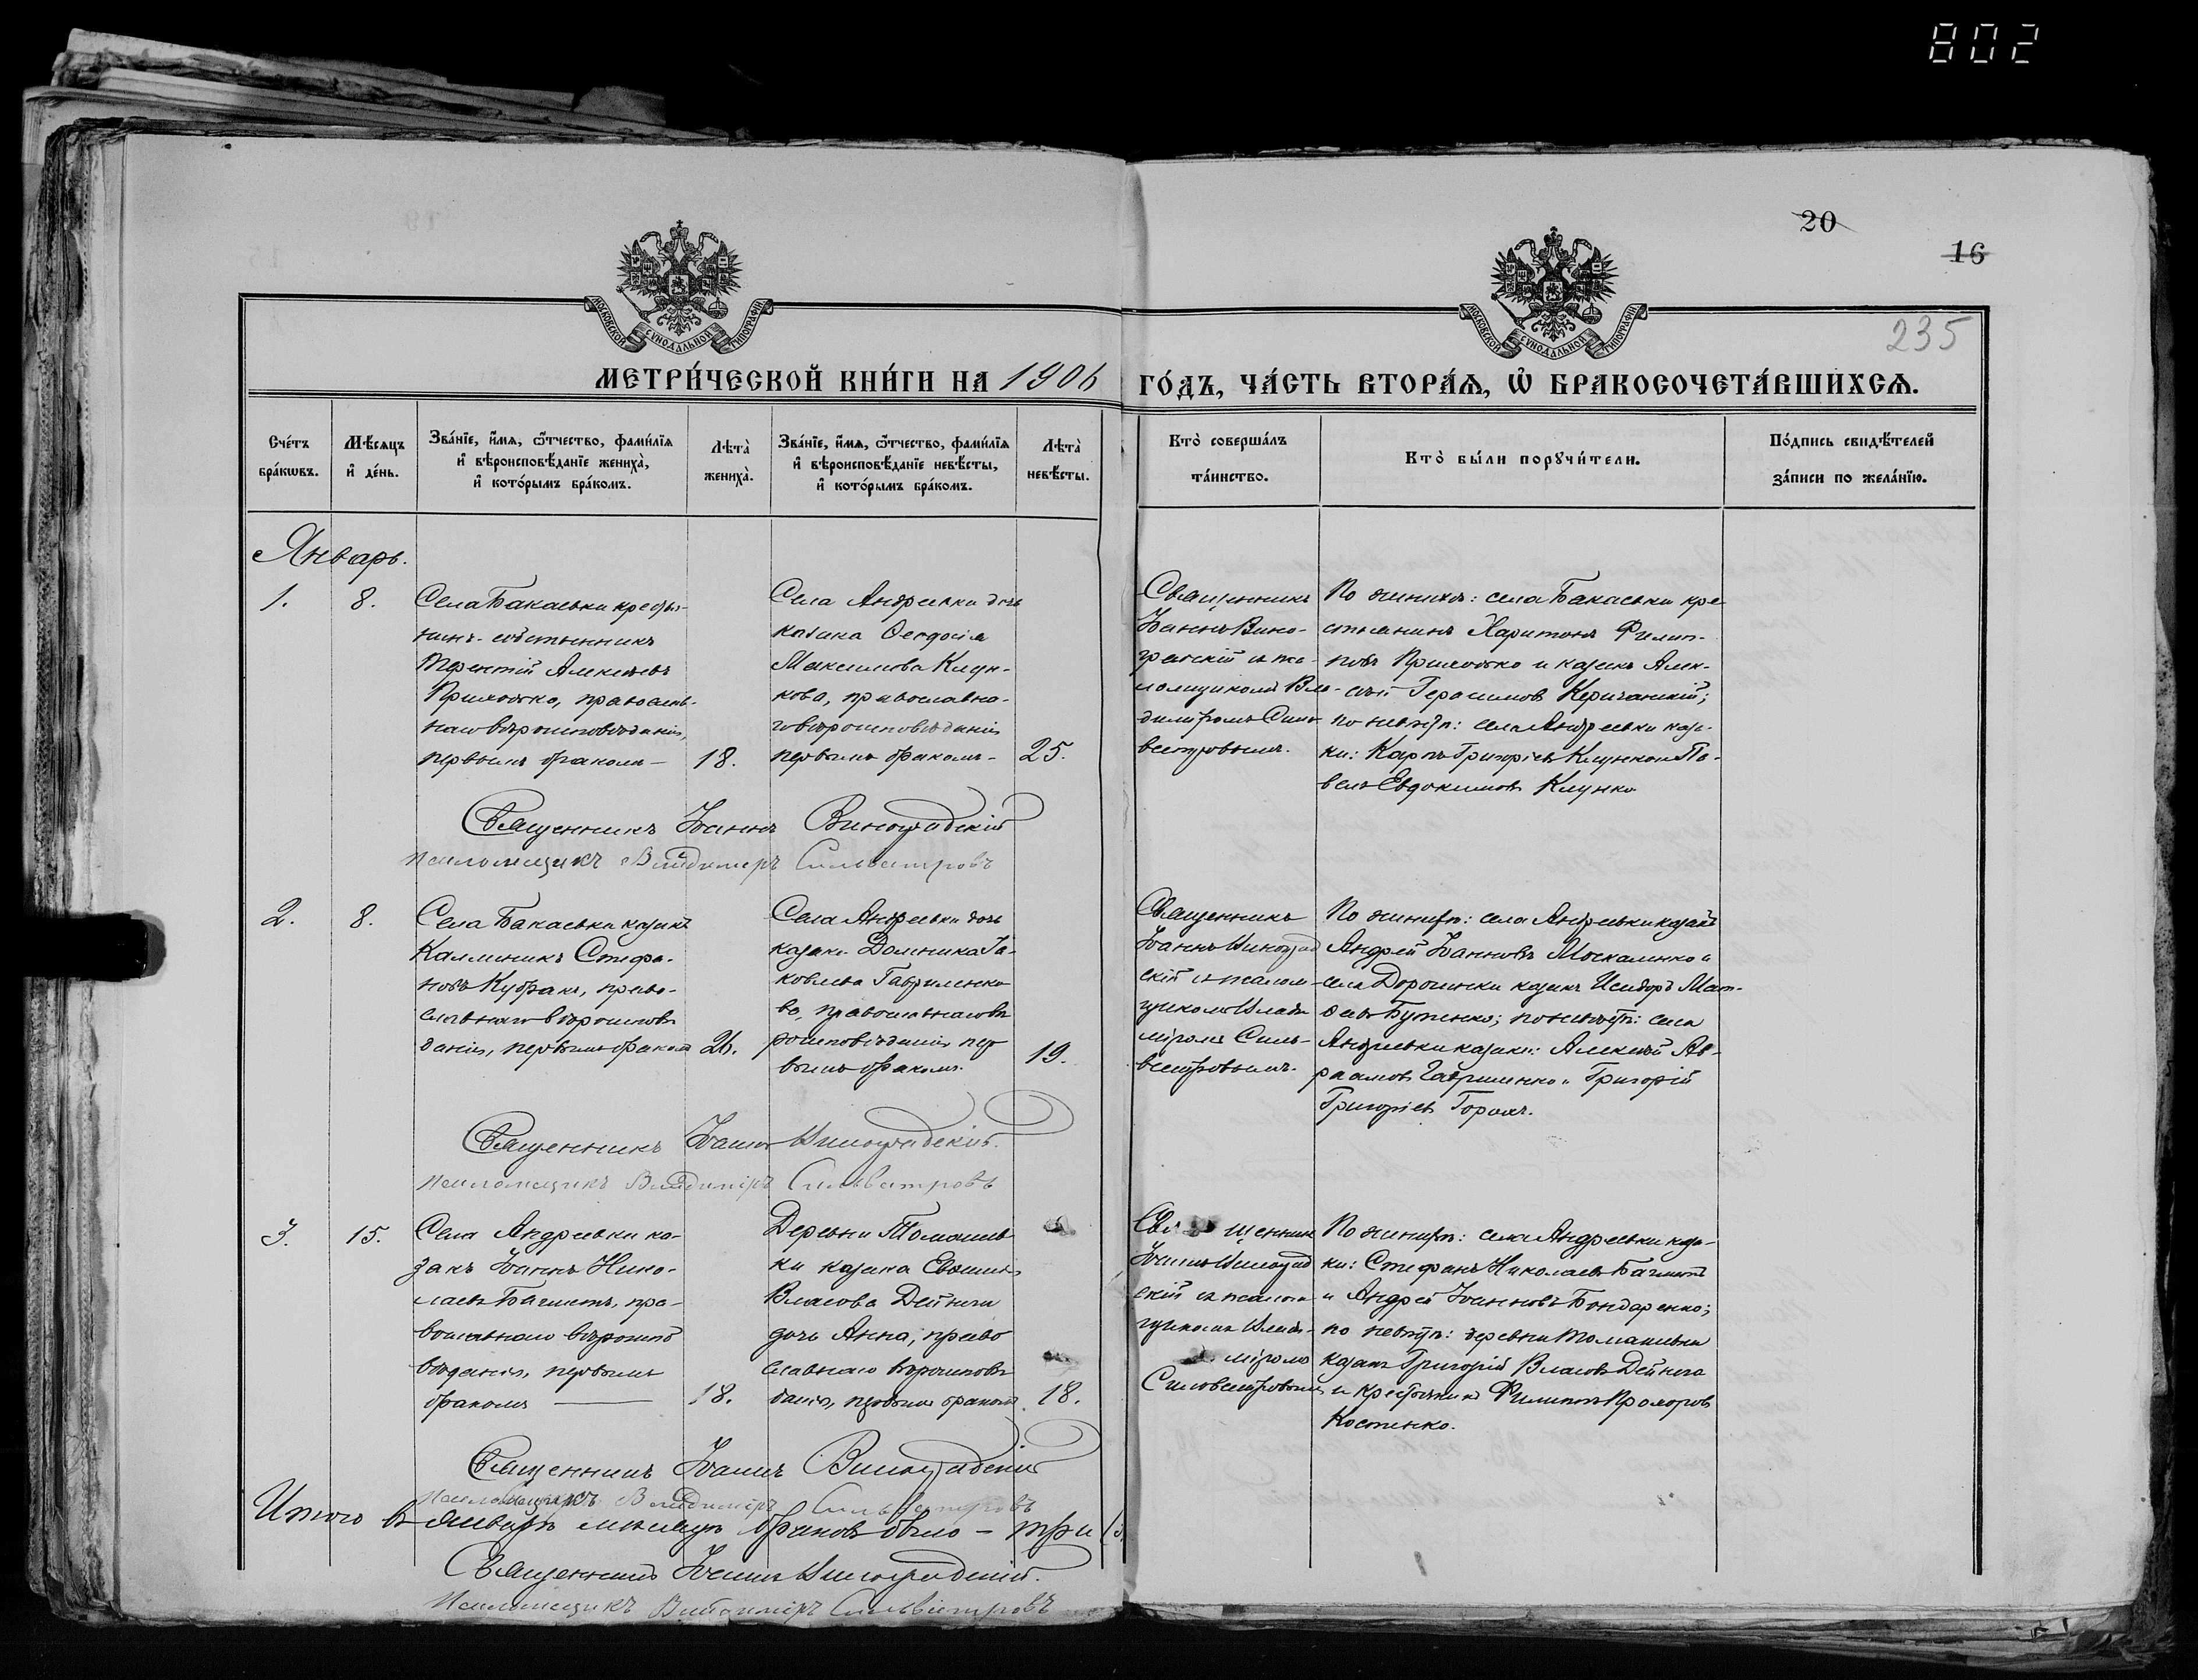 802
20
16
235
МОСКОВСКОЙ СѴНОДАЛЬНОЙ ТИПОГРАФІИ
МОСКОВСКОЙ СѴНОДАЛЬНОЙ ТИПОГРАФІИ
МЕТРИ́ЧЕСКОЙ КНИ́ГИ НА 1906 ГО́ДЪ, ЧА́СТЬ ВТОРА́Ѧ, Ѿ БРАКОСОЧЕТА́ВШИХСѦ.
Сче́тъ бра́кѡвъ.
Мѣ́сяцъ и҆ де́нь.
Зва́нїе, и҆́мѧ, ѻ҆́тчество, фами́лїѧ и҆ вѣроисповѣ́данїе жениха̀, и҆ кото́рымъ бра́комъ.
Лѣта̀ жениха̀.
Зва́нїе, и҆́мѧ, ѻ҆́тчество, фами́лїѧ и҆ вѣроисповѣ́данїе невѣ́сты, и҆ кото́рымъ бра́комъ.
Лѣта̀ невѣ́сты.
Кто̀ соверша́лъ та́инство.
Кто̀ бы́ли порꙋчи́тели.
По́дпись свидѣ́телей за́писи по жела́нїю.
Январь.
1.
8.
Села Бакаевки крестья-
нинъ-собственникъ
Терентій Алексѣевъ
Приходько, православ-
наго вѣроисповѣданія,
первымъ бракомъ —
18.
Села Андреевки дочь
козака Ѳеодосія
Максимова Клун-
кова, православна-
го вѣроисповѣданія
первымъ бракомъ -
25.
Священникъ
Іоаннъ Вино-
градскій съ пса-
ломщикомъ Вла-
диміромъ Силь-
вестровымъ.
По женихѣ: села Бакаевки кре
стьянинъ Харитонъ Филип-
повъ Приходько и козакъ Алек-
сѣй Герасимовъ Керичанскій;
по невѣстѣ: села Андреевки каза-
ки: Карпъ Григорьевъ Клунко и Па-
велъ Евдокимовъ Клунко
Священникъ Іоаннъ Виноградскій
Псаломщикъ Владиміръ Сильвестровъ
2.
8.
Села Бакаевки козакъ
Каленикъ Стефа-
новъ Кубракъ, право-
славнаго вѣроисповѣ
данія, первымъ бракомъ
26.
Села Андреевки дочь
казака Домника Іа-
ковлева Гавриленко-
ва, православнаго вѣ
роисповѣданія пер
вымъ бракомъ.
19.
Священникъ
Іоаннъ Виноград
скій съ псалом-
щикомъ Влади
міромъ Силь-
вестровымъ.
По женихѣ: села Андреевки козакъ
Андрей Іоанновъ Москаленко и
села Дорогинки казакъ Исидоръ Мат-
Бутенко; по невѣстѣ: села
Андреевки казаки: Алексѣй Ав-
раамовъ Гавриленко и Григорій
Григорьевъ Горохъ.
Священникъ Іоаннъ Виноградскій.
Псаломщикъ Владиміръ Сильвестровъ
3.
15.
Села Андреевки ка-
закъ Іоаннъ Нико-
лаевъ Багметъ, пра-
вославнаго вѣроиспо
вѣданія, первымъ
бракомъ —
18.
Деревни Томашев
ки казака
Власова Дейнеги
дочь Анна, право
славнаго вѣроисповѣ
данія, первымъ бракомъ
18.
Священник
Іоаннъ Виноград
скій съ псалом
щикомъ Влади-
міромъ
Сильвестровымъ
По женихѣ: села Андреевки каза-
ки: Стефанъ Николаевъ Багметъ
и Андрей Іоанновъ Бондаренко;
по невѣстѣ: деревни Томашевки
казакъ Григорій Власовъ Дейнега
и крестьянинъ Филиппъ Прохоровъ
Костенко.
Священникъ Іоаннъ Виноградскій
Псаломщикъ Владиміръ Сильвестровъ
Итого въ январѣ мѣсяцѣ браковъ было — три (3
Священникъ Іоаннъ Виноградскій.
Псаломщикъ Владиміръ Сильвестровъ